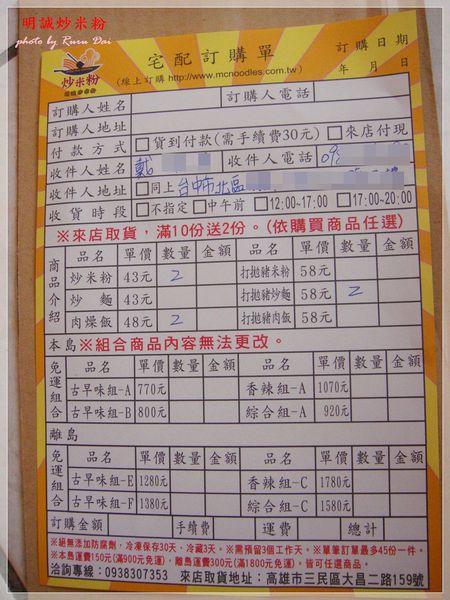 明誠炒米粉
photo by Ruru Dai
宅配訂購單
訂購日期
年 月 日
炒米粉
(線上訂購 http://www.mcnoodles.com.tw)
訂購人姓名 訂購人電話
訂購人地址
付款方式 □貨到付款(需手續費30元) □來店付現
收件人姓名 戴 收件人電話 09
收件人地址 □同上 台中市北區
收貨時段 □不指定 □中午前 □12:00~17:00 □17:00~20:00
※來店取貨，滿10份送2份。(依購買商品任選)
商品介紹
品名 單價 數量 金額 品名 單價 數量 金額
炒米粉 43元 2 打拋豬米粉 58元
炒麵 43元 打拋豬炒麵 58元 2
肉燥飯 48元 2 打拋豬肉飯 58元
本島 ※組合商品內容無法更改。
免運組合
品名 單價 數量 金額 品名 單價 數量 金額
古早味組-A 770元 香辣組-A 1070元
古早味組-B 800元 綜合組-A 920元
離島
免運組合
品名 單價 數量 金額 品名 單價 數量 金額
古早味組-E 1280元 香辣組-C 1780元
古早味組-F 1380元 綜合組-C 1580元
訂購金額 手續費 運費 總計
※絕無添加防腐劑，冷凍保存30天，冷藏3天。※需預留3個工作天。※單筆訂單最多45份一件。
※本島運費150元(滿900元免運)，離島運費300元(滿1800元免運)。皆可任選商品。
洽詢專線：0938307353 來店取貨地址：高雄市三民區大昌二路159號